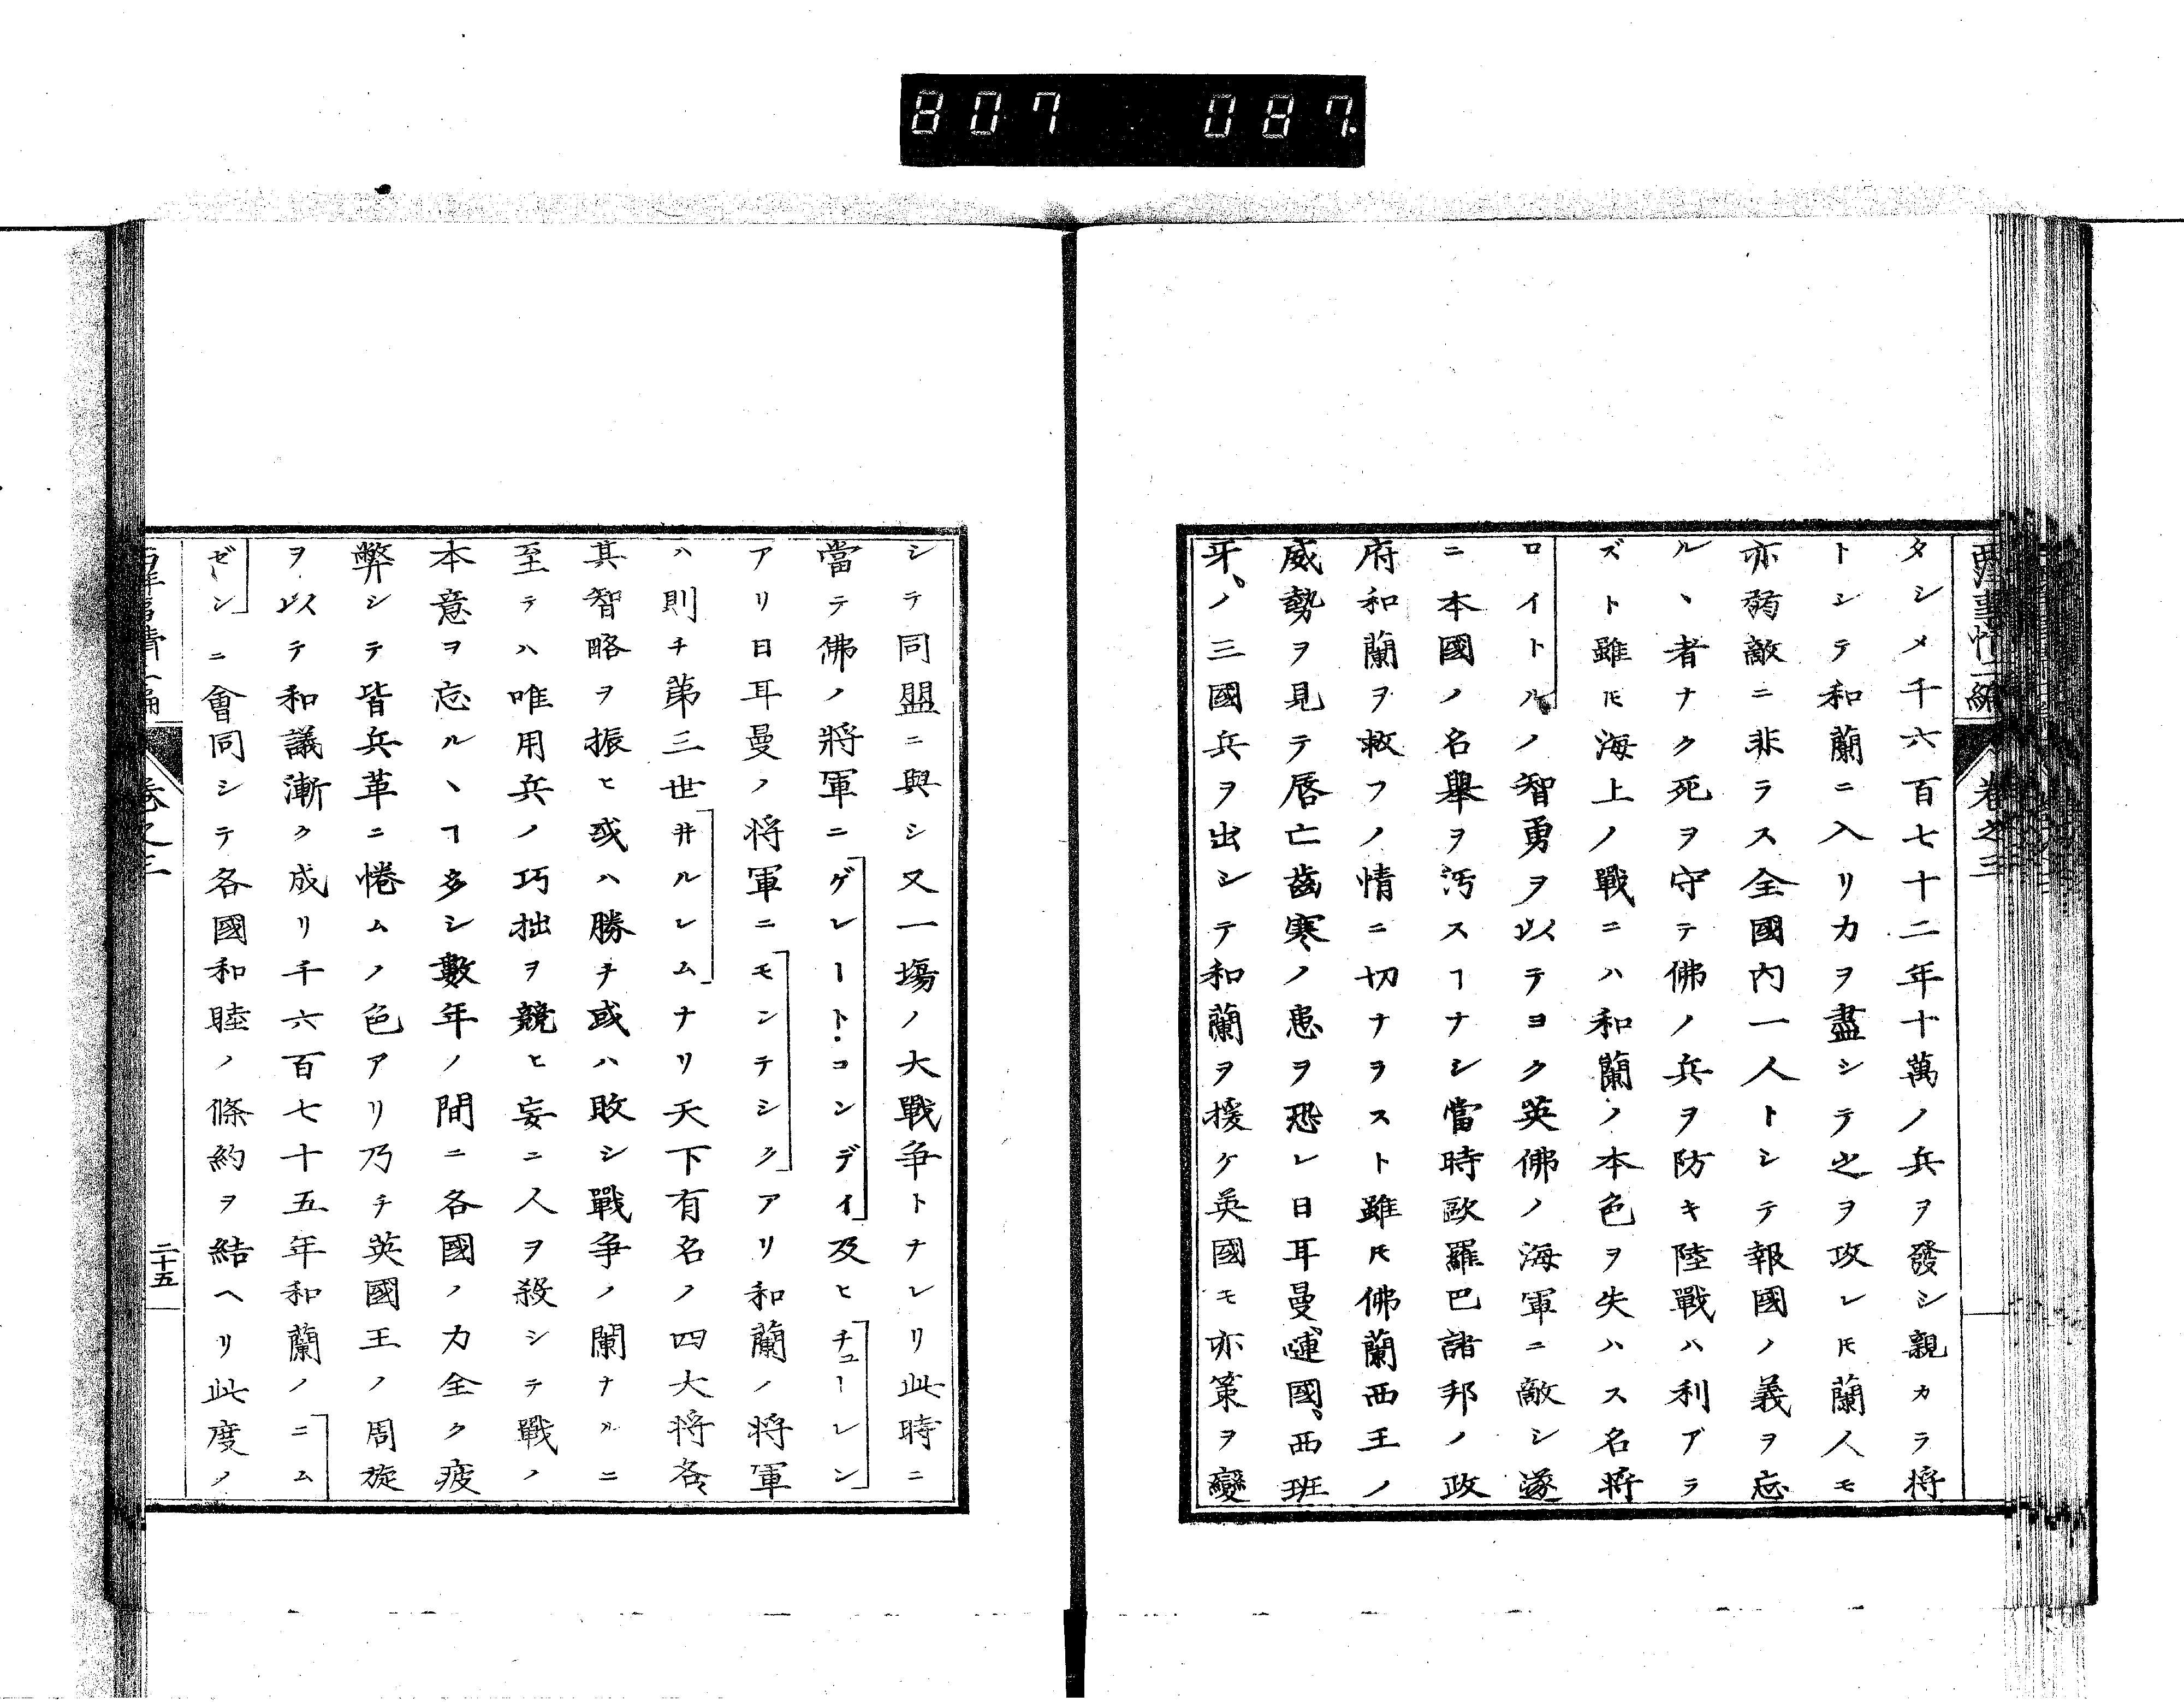 807 087.
西洋事情二編 卷之三
タシメ千六百七十二年十萬ノ兵ヲ發シ親カラ將
トシテ和蘭ニ入リカヲ盡シテ之ヲ攻レ𪜈蘭人モ
亦弱敵ニ非ラス全國内一人トシテ報國ノ義ヲ忘
ルヽ者ナク死ヲ守テ佛ノ兵ヲ防キ陸戰ハ利アラ
ズト雖𪜈海上ノ戰ニハ和蘭ノ本色ヲ失ハス名將
ロイトルノ智勇ヲ以テヨク英佛ノ海軍ニ敵シ遂
ニ本國ノ名舉ヲ汚スヿナシ當時歐羅巴諸邦ノ政
府和蘭ヲ救フノ情ニ切ナヲスト雖𪜈佛蘭西王ノ
威勢ヲ見テ唇亡齒寒ノ患ヲ恐レ日耳曼、嗹國、西班
牙、ノ三國兵ヲ出シテ和蘭ヲ援ケ英國モ亦策ヲ變
シテ同盟ニ與シ又一塲ノ大戰爭トナレリ此時ニ
當テ佛ノ將軍ニゲレート・コンデイ及ヒチューレン
アリ日耳曼ノ將軍ニモンテシクアリ和蘭ノ將軍
ハ則チ第三世井ルレムナリ天下有名ノ四大將各〻
其智略ヲ振ヒ或ハ勝チ或ハ敗シ戰爭ノ闌ナルニ
至テハ唯用兵ノ巧拙ヲ競ヒ妄ニ人ヲ殺シテ戰ノ
本意ヲ忘ルヽヿ多シ數年ノ間ニ各國ノ力全ク疲
弊シテ皆兵革ニ惓ムノ色アリ乃チ英國王ノ周旋
ヲ以テ和議漸ク成リ千六百七十五年和蘭ノニム
ゼンニ會同シテ各國和睦ノ條約ヲ結ヘリ此度ノ
西洋事情二編 卷之三 二十五